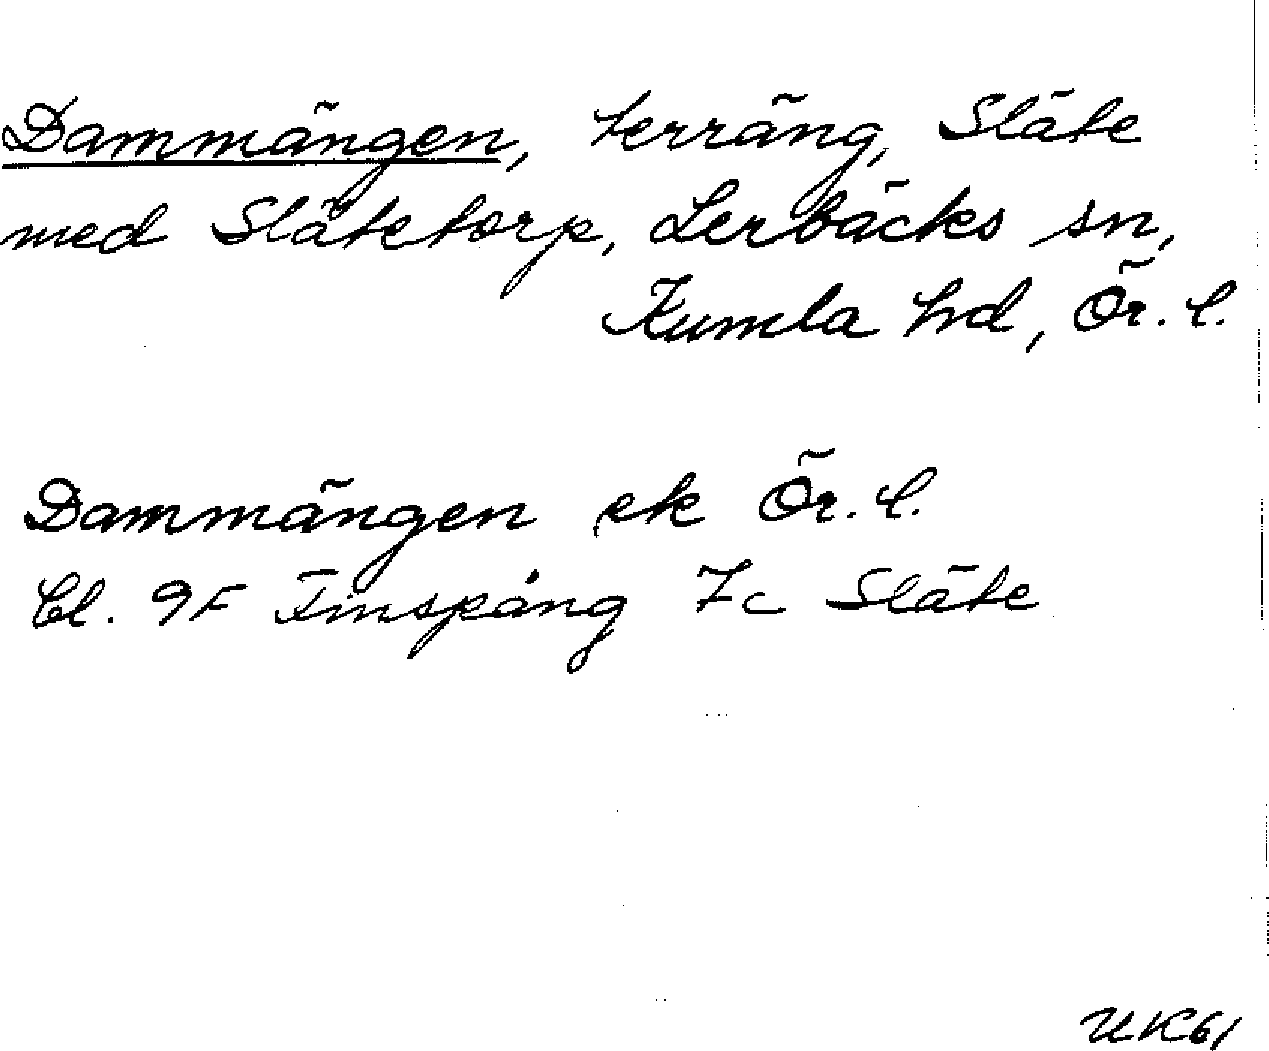 Dammängen, terräng, Släte
med Slätetorp, Lerbäcks sn,
Kumla hd, Ör. l.
Dammängen ek Ör. l.
bl. 9F Finspång 7c Släte
UK61